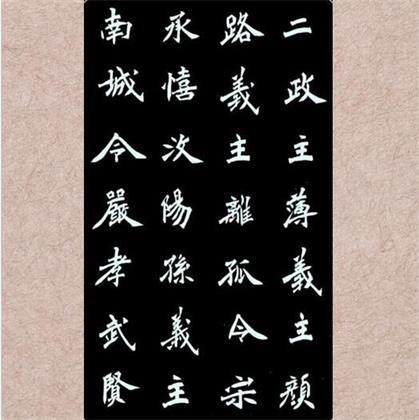 二政主薄義主顔
路義主離孤令宗
承憘汶陽孫義主
南城令嚴孝武賢